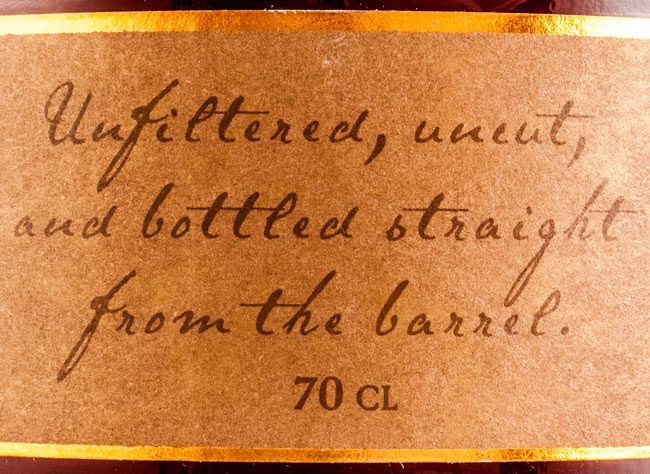 Unfiltered, uncut,
and bottled straight
from the barrel.
70 CL